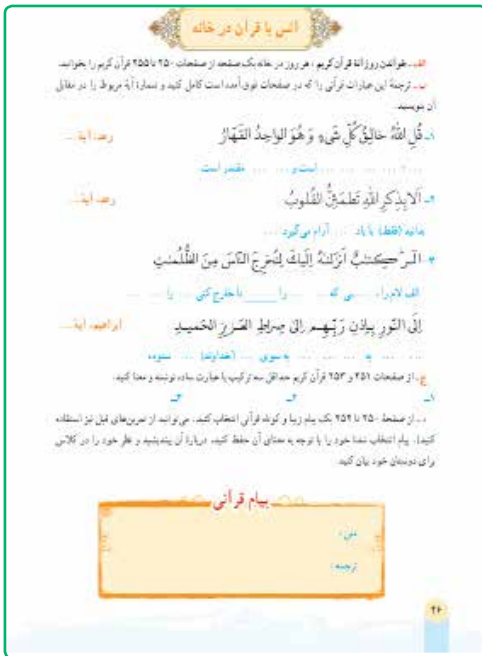 انس با قرآن در خانه
الف ـ خواندن روزانهٔ قرآن کریم: هر روز در خانه یک صفحه از صفحات ۲۵۰ تا ۲۵۵ قرآن کریم را بخوانید.
ب ـ ترجمهٔ این عبارات قرآنی را که در صفحات فوق آمده است کامل کنید و شمارهٔ آیهٔ مربوط را در مقابل
آن بنویسید.
۱ـ قُلِ اللّٰهُ خالِقُ كُلِّ شَیءٍ وَ هُوَ الواحِدُ القَهّارُ رعد، آیهٔ ...
... است و ... مقتدر است
۲ـ اَلا بِذِكرِ اللّٰهِ تَطمَئِنُّ القُلوبُ رعد، آیهٔ ...
بدانید (فقط) با یاد ... آرام می‌گیرد ...
۳ـ الٓر كِتٰبٌ اَنزَلنٰهُ اِلَیكَ لِتُخرِجَ النّاسَ مِنَ الظُّلُمٰتِ
الف لام را، ... ی که ... را ... تا خارج کنی ... را ...
اِلَی النّورِ بِاِذنِ رَبِّهِم اِلىٰ صِراطِ العَزیزِ الحَمیدِ ابراهیم، آیهٔ ...
... به ... به سوی ... (خداوند) ... ستوده
ج ـ از صفحات ۲۵۱ و ۲۵۳ قرآن کریم حداقل سه ترکیب یا عبارت ساده نوشته و معنا کنید.
۱ـ ۲ـ ۳ـ
د ـ از صفحهٔ ۲۵۰ تا ۲۵۴ یک پیام زیبا و کوتاه قرآنی انتخاب کنید. (می‌توانید از تمرین‌های قبل نیز استفاده
کنید). پیام انتخاب شدهٔ خود را با توجه به معنای آن حفظ کنید، دربارهٔ آن بیندیشید و نظر خود را در کلاس
برای دوستان خود بیان کنید.
پیام قرآنی
متن:
ترجمه: